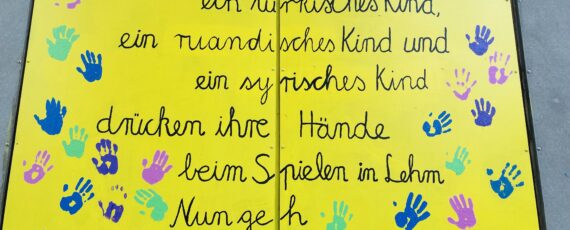 ein türkisches Kind,
ein ruandisches Kind und
ein syrisches Kind
drücken ihre Hände
beim Spielen in Lehm
Nun geh